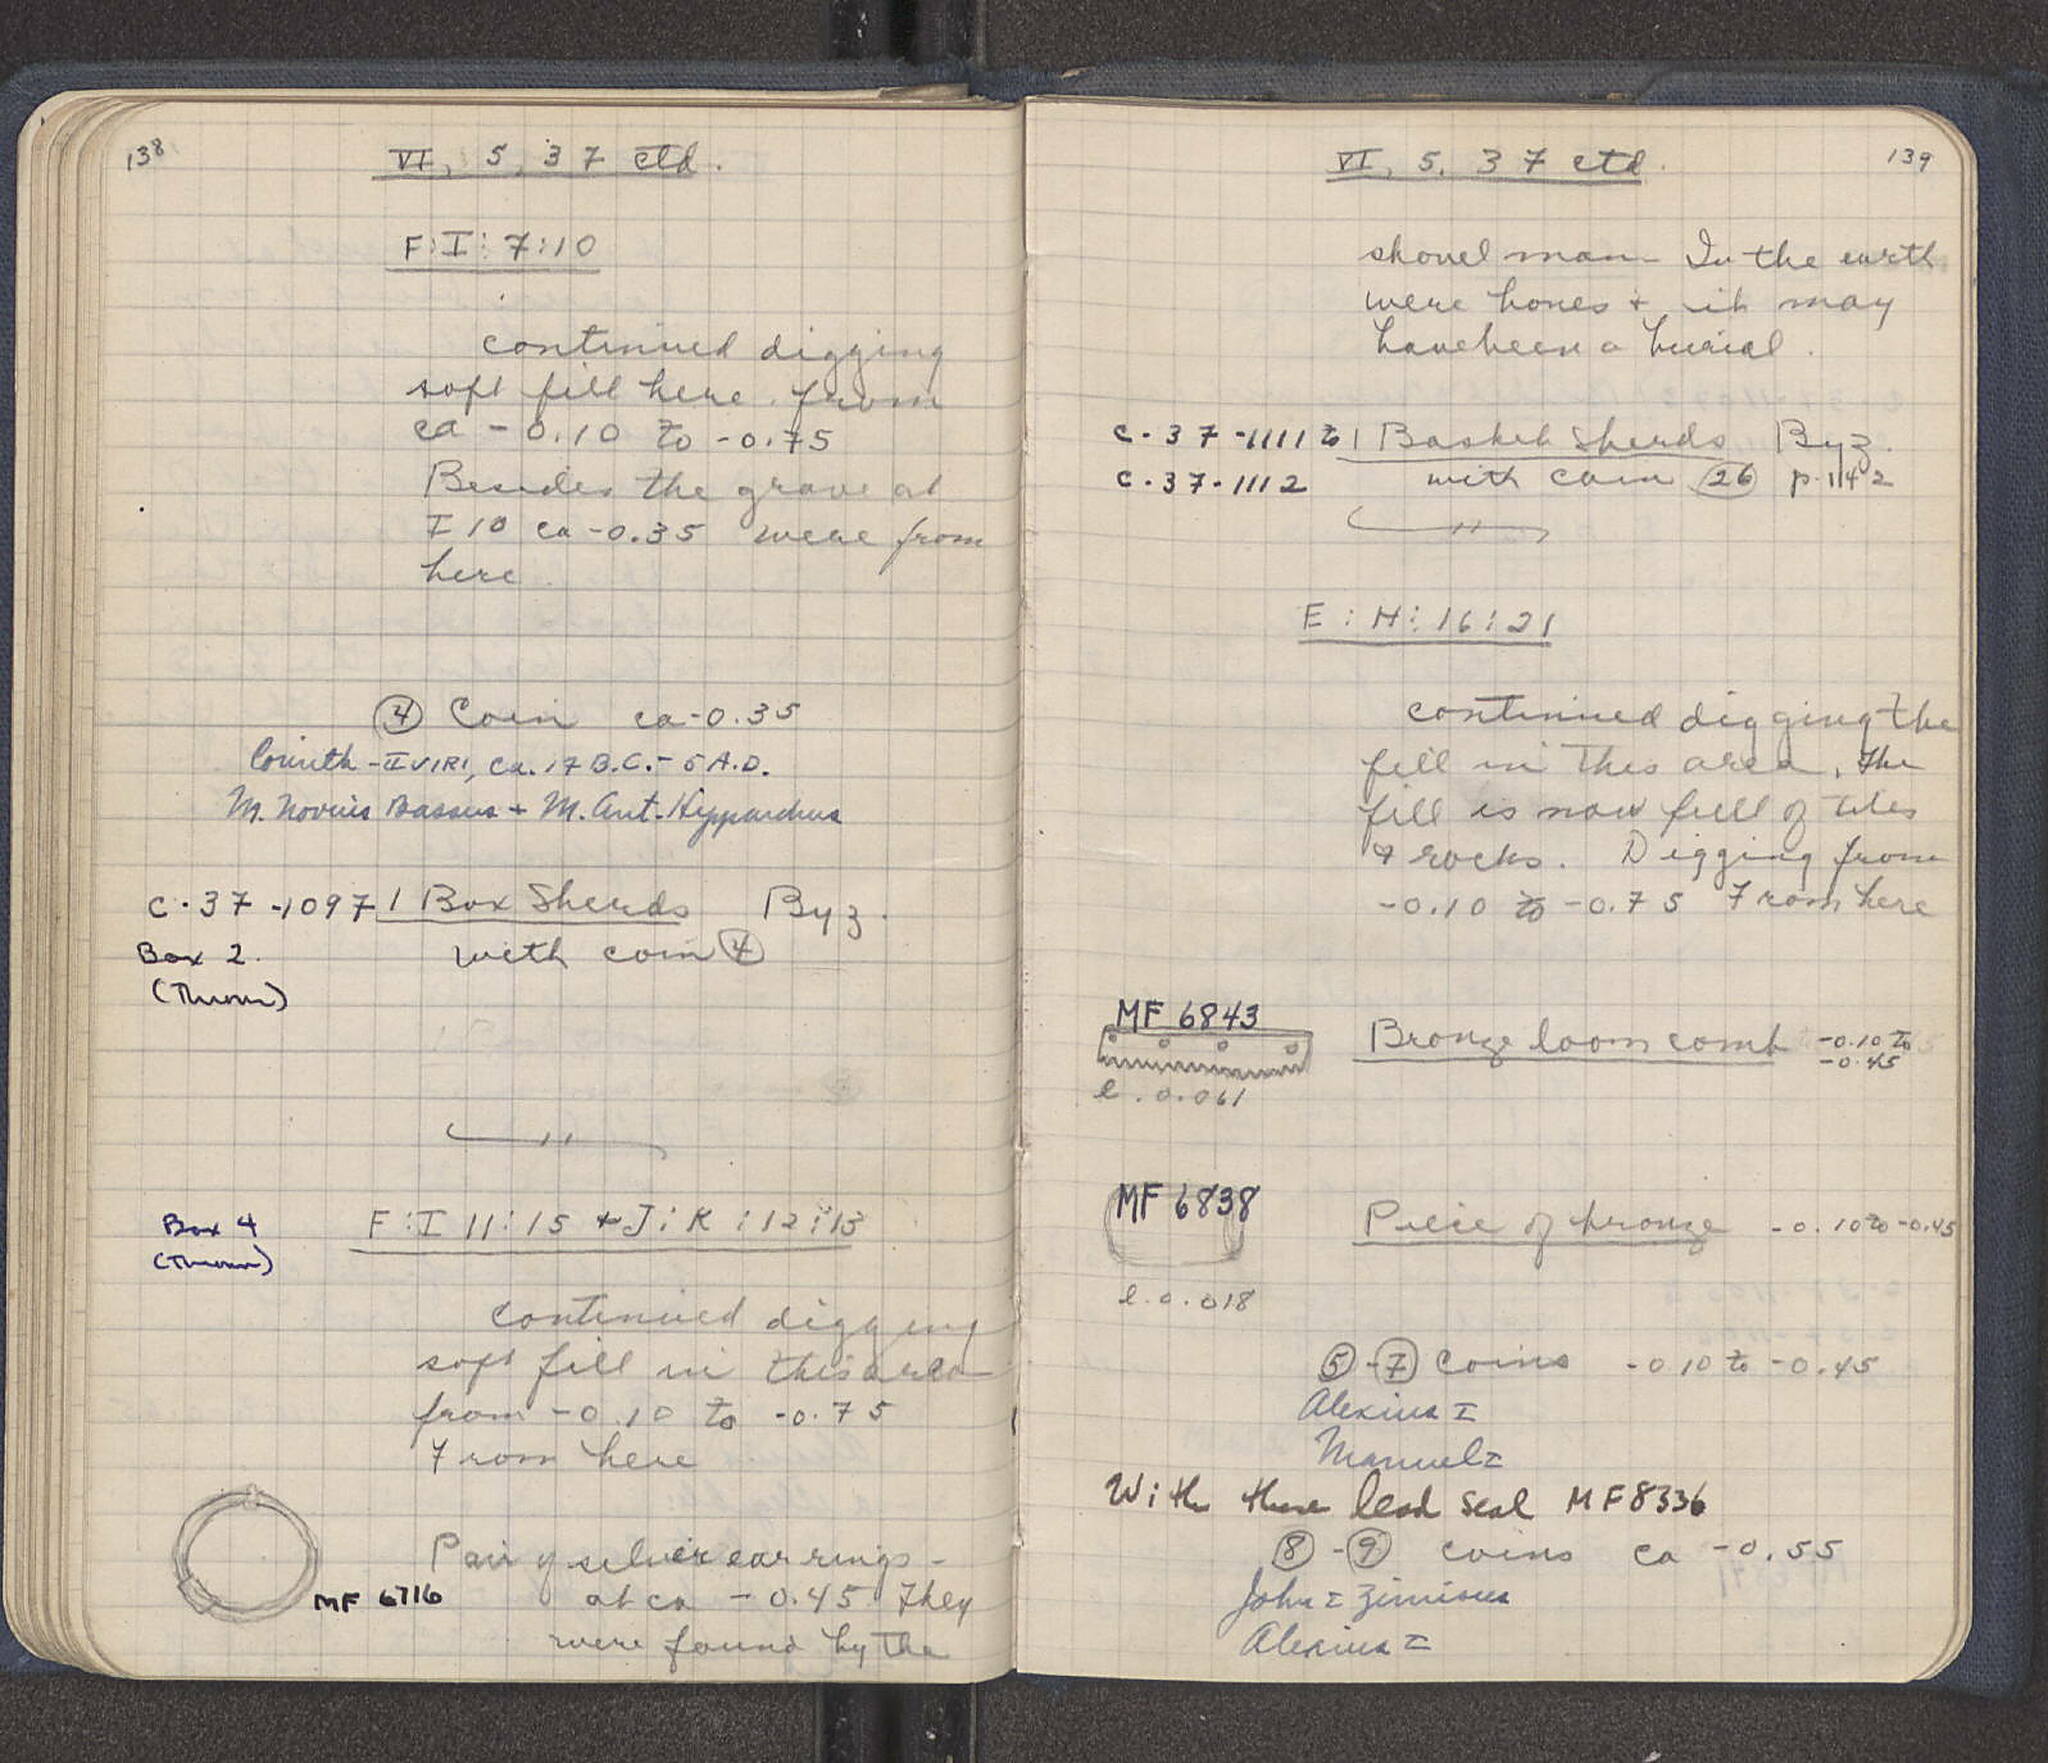 138
VI, 5, 37 ctd.
F:I:7:10
continued digging
soft fill here. from
ca -0.10 to -0.75
Besides the grave at
I 10 ca -0.35 were from
here.
④ Coin ca -0.35
Corinth - IIVIRI, ca. 17 B.C. - 5 A.D.
M. Novius Bassus + M. Ant. Hipparchus
C-37-1097 1 Box Sherds Byz.
Box 2. with coin ④
(Thrown)
Box 4 F:I 11:15 + J:K:12:13
(Thrown)
continued digging
soft fill in this area
from -0.10 to -0.75
From here
Pair of silver earrings -
MF 6716 at ca -0.45 They
were found by the
VI, 5, 37 ctd. 139
shovel man. In the earth
were bones + it may
have been a burial.
C-37-1111 to 1 Basket Sherds Byz.
C-37-1112 with coin ㉖ p. 142
E:H:16:21
continued digging the
fill in this area, the
fill is now full of tiles
+ rocks. Digging from
-0.10 to -0.75 From here
MF 6843 Bronze loom comb -0.10 to
-0.45
l. 0.061
MF 6838 Piece of bronze -0.10 to -0.45
l. 0.018
⑤-⑦ Coins -0.10 to -0.45
Alexius I
Manuel I
With these lead seal MF8336
⑧-⑨ coins ca -0.55
John I Zimisces
Alexius I